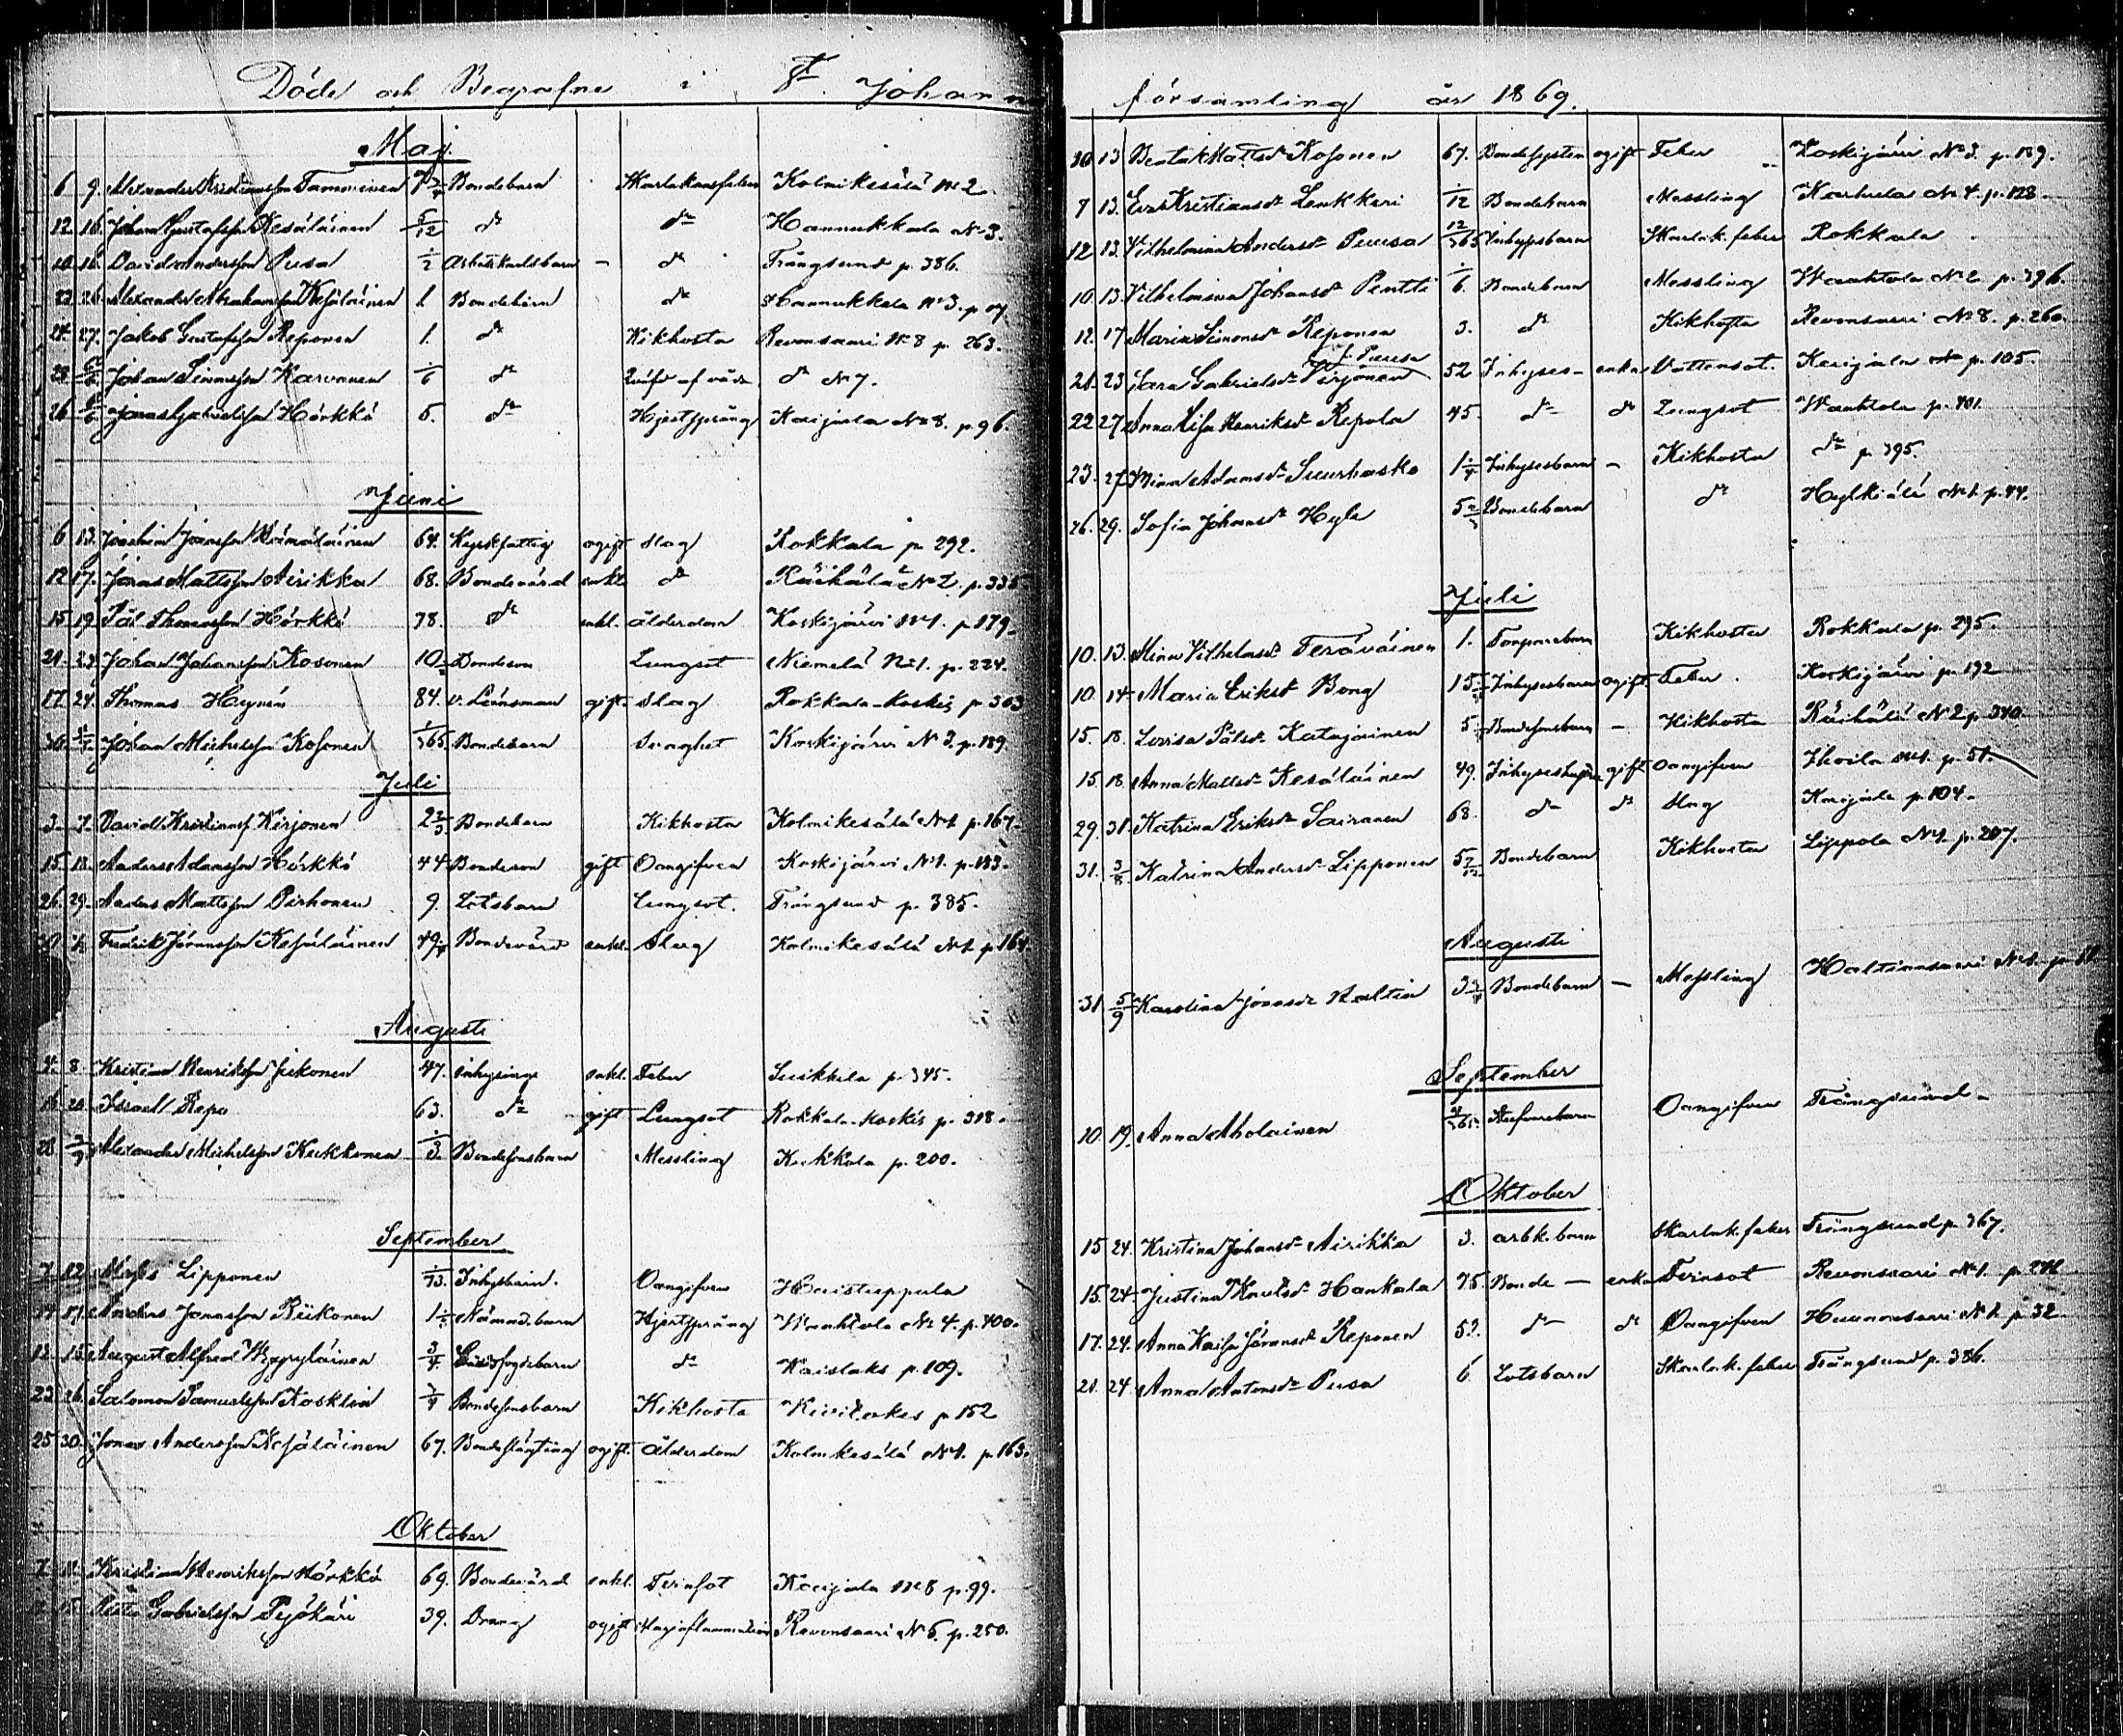 Döde och Begrafne i St. Johann
Maj
6 9. Alexander Kristiansson Tamminen Bondebarn Skarlakansfeber Kolmikesälä No 2
12. 16. Johan Gustafsson Kesäläinen 5/12 do do Hannukkala No 3.
10 16. David Andersson Pusa 1/2 Arbetskarlsbarn - do Trångsund p. 386.
23 26. Alexander Abrahamsson Kesäläinen 1 Bondebarn do Hannukkala No 3. p
24. 27. Jakob Gustafsson Reponen 1. do Kikhosta Revonsaari No 8 p. 263.
28 Johan Simonsson Karvanen 1/6 do do No 7.
26 Jonas Gabrielsson Hörkkö 5. do Hjertsprång Kaijala No 8. p. 96.
Juni
6 13. Joachim Jöransson 64. Kyrkfattig ogift Slag Rokkala p. 292.
12 17. Jöran Mattsson Airikka 68. Bondevärd enkl. do Räihälä No 2. p. 335
15 19. Pål Thomasson Hörkkö 78. do enkl. ålderdom Koskijärvi No 1. p. 179.
21. 24 Johan Johansson Kosonen 10 Bondeson Lungsot Niemelä No 1. p. 224.
17. 24. Thomas Heynén 84. v. Länsman gift. Slag Rokkala-Koskis p. 303
30. Johan Michelsson Kosonen 1/365 Bondebarn Svaghet Koskijärvi No 3. p. 189.
Juli
3. 7. David Kristianss Kirjonen 2 2/3 Bondebarn Kikhosta Kolmikesälä No 1 p. 167.
15. 18. Anders Adamsson Hörkkö 44 Bondeson gift Oangifven Koskijärvi No 1. p. 183.
26. 29. Anders Mattsson Pirhonen 9. Lotsbarn Lungsot. Trångsund p. 385.
Fredrik Jöransson Kesäläinen 49 Bondevärd enkl. Slag Kolmikesälä No 1 p. 164.
Augusti
4. 8. Kristian Henriksson Jukonen 47. inhysing enkl. Feber Suikkela p. 345.
16 20. Israel Repo 63. do gift Lungsot Rokkala-Koskis p. 318.
28 Alexander Michelsson Kukkonen 1/3. Bondesonsbarn Messling Kukkola p. 200.
September
7. 12. Moses Lipponen Inhysbarn. Oangifven
14 17. Anders Jonasson Riikonen Nämnd.barn Hjertsprång Waahtola No 4. p. 400.
12. 15. August Alfred Hyyryläinen 3/4 do Kaislaks p. 109.
23 26. Salomon Samuelsson Kosklin 3/4 Bondesonsbarn Kikhosta p. 152
25 30. Jonas Andersson Kesäläinen 67. Bondeflägting ogift. ålderdom Kolmikesälä No 1. p. 163.
Oktober
7. 11. Kristian Henriksson Hörkkö 69. Bondevärd enkl. Tärsot Kaijala No 8 p. 99.
Gabrielsson 39. Dräng ogift Maginflammation Revonsaari No 6. p. 250.
församling år 1869.
10 13 Beata Mattsdr Kosonen 67. Bondesyster ogift Feber Koskijärvi No 3. p. 189.
7 13. Eva Kristiansdr Lenkkeri 1/12 Bondebarn Messling Karhula No 4. p. 128.
12 13. Vilhelmina Andersdr Puusa 12/365 Inhysbarn Skarlak. feber Rokkala
10. 13. Vilhelmina Johansdr Pentti 1/6. Bondebarn Messling Waahtola No 2 p. 396.
12. 17 Maria Simonsdr Reponen 3. do Kikhosta Revonsaari No 8. p. 260.
f. Puusa
21. 23 Sara Gabrielsdr Pirjonen 52 Inhyses- enka Vattensot. Kaijala p. 105.
22 27 Anna Lisa Henriksdr Repola 45. do do Lungsot Waahtola p. 401.
23. 27 Mina Adamsdr Suurhasko Inhysesbarn - Kikhosta do p. 395.
26. 29. Sofia Johansdr Hyle Bondebarn do No 1. p. 44.
Juli
10. 13. Mina Vilhelmsdr Teräväinen 1. Torparebarn Kikhosta Rokkala p. 295.
10. 14. Maria Eriksdr Bong 15 Inhysesbarn ogift. Feber. Koskijärvi p. 192
15. 18. Lovisa Pålsdr Katajainen 5 Bondesonsbarn - Kikhosta Räihälä No 2 p. 340.
15. 18. Anna Mattsdr Kesäläinen 49. Inhyseshustru gift Oangifven No 1. p. 51.
29. 31. Katrina Eriksdr Sairanen 68. do do Slag Kaijala p. 104.
31. 3/8. Katrina Andersdr Lipponen 5 7/12 Bondebarn Kikhosta Lippola No 1. p. 207.
Augusti
31. 5/9 Karolina Jönasdr Haltia Bondebarn - Messling Haltiansaari No 1.
September
10. 19. Anna Aholainen Oangifven Trångsund.
Oktober
15 24. Kristina Johansdr Airikka 3. arbk. barn Skarlak. feber Trångsund p. 367.
15. 24. Justina Knutsdr Hankala 75 Bonde - enka Tärsot Revonsaari No 1.
17. 24. Anna Kaisa Jöransdr Reponen 52. do do Oangifven No 1. p. 32.
21. 24. Anna Antonsdr Pusa 6 Lotsbarn Skarlak. feber Trångsund p. 386.